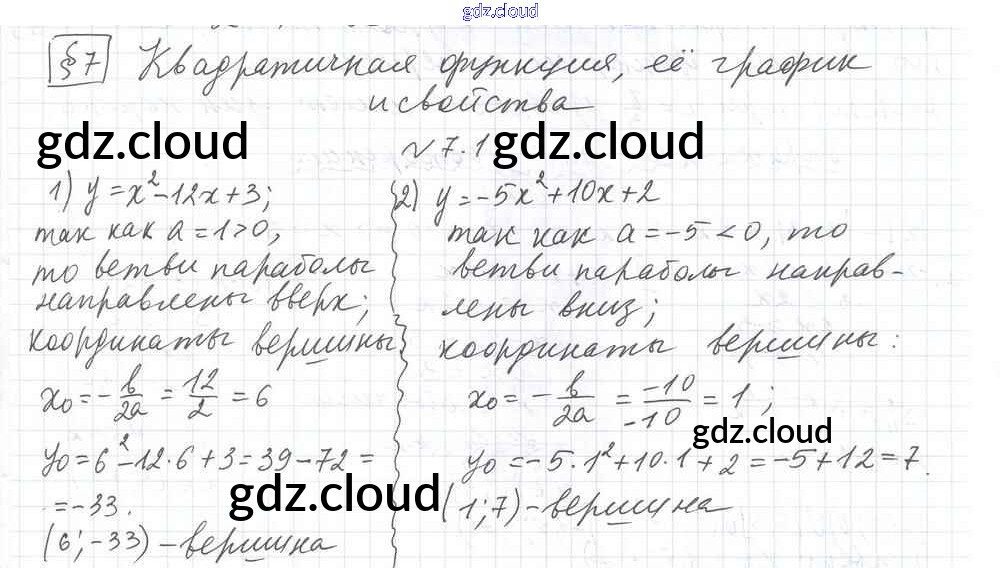 gdz.cloud
§7 Квадратичная функция, её график
и свойства
gdz.cloud
№7.1
gdz.cloud
1) y = x² - 12x + 3;
так как a = 1 > 0,
то ветви параболы
направлены вверх;
координаты вершины
x₀ = - b/2a = 12/2 = 6
y₀ = 6² - 12·6 + 3 = 39 - 72 =
= -33.
(6; -33) - вершина
2) y = -5x² + 10x + 2
так как a = -5 < 0, то
ветви параболы направ-
лены вниз;
координаты вершины:
x₀ = - b/2a = -10/-10 = 1;
y₀ = -5·1² + 10·1 + 2 = -5 + 12 = 7.
(1; 7) - вершина
gdz.cloud
gdz.cloud